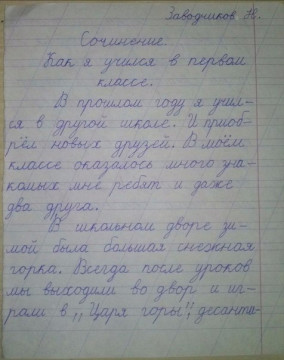 Заводчиков Н.
Сочинение.
Как я учился в первом
классе.
В прошлом году я учил-
ся в другой школе. И приоб-
рёл новых друзей. В моём
классе оказалось много зна-
комых мне ребят и даже
два друга.
В школьном дворе зи-
мой была большая снежная
горка. Всегда после уроков
мы выходили во двор и иг-
рали в ,,Царя горы", десанти-